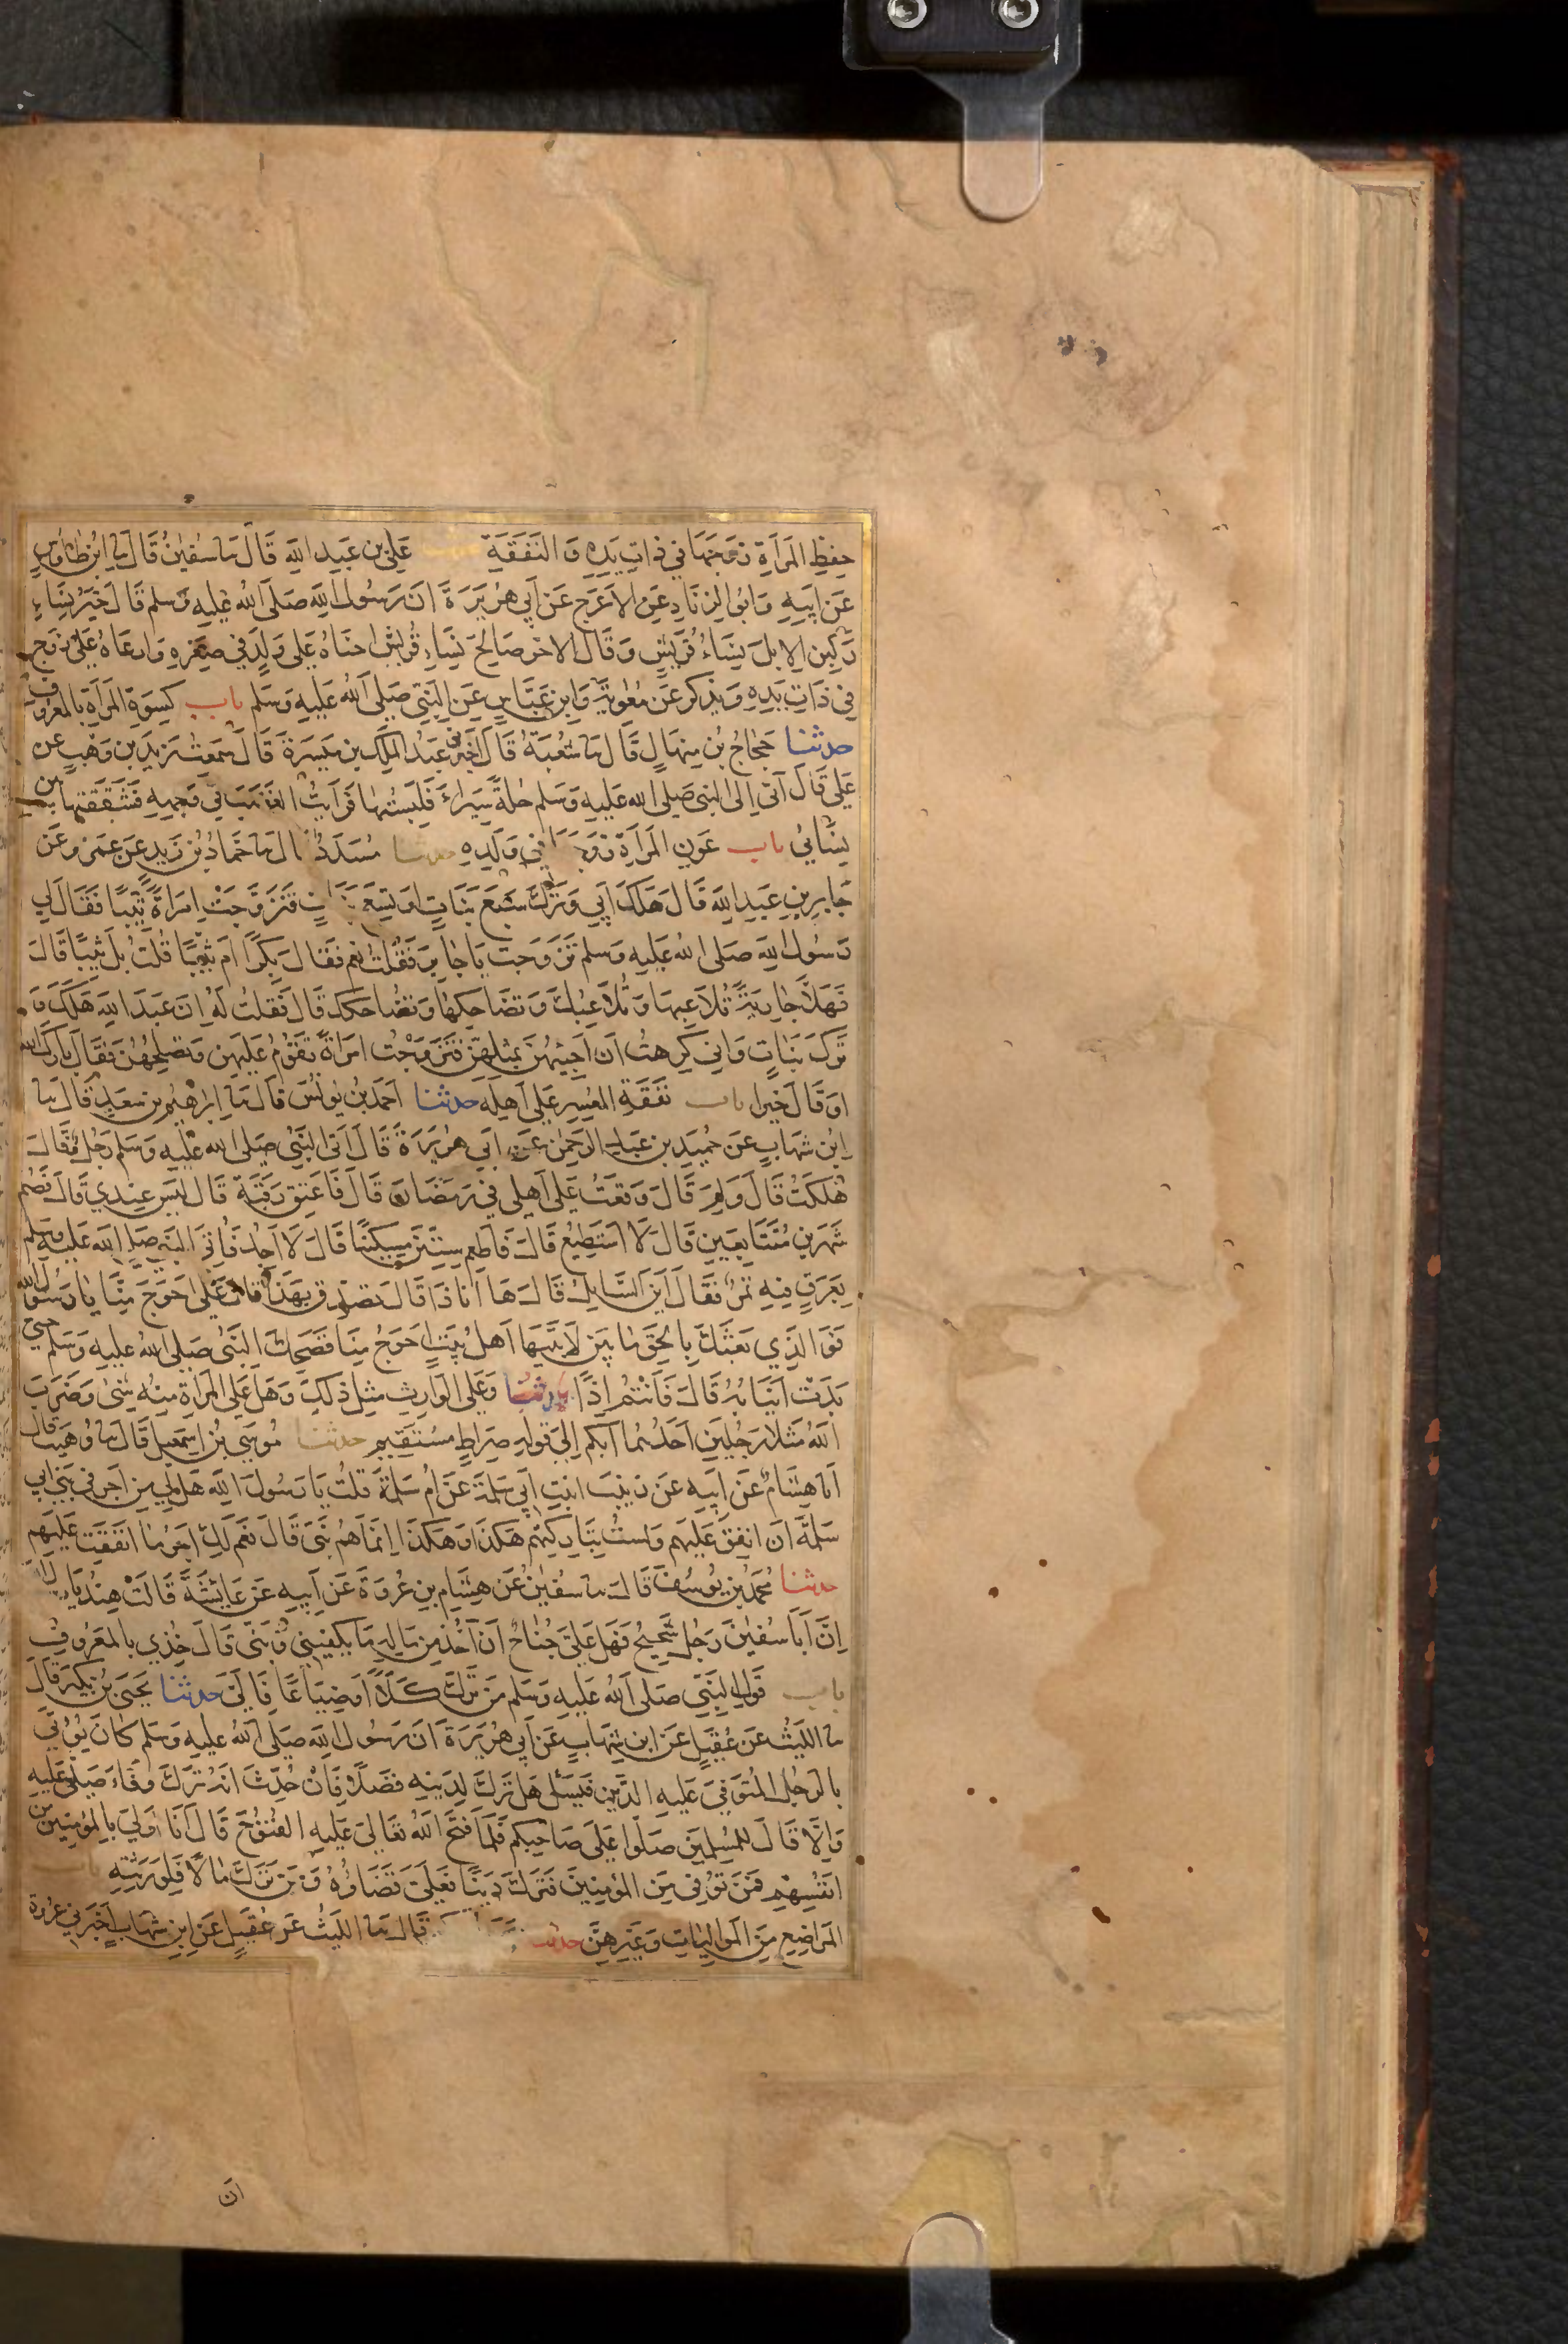 حفظ المرأة زوجها في ذات يده والنفقة علي بن عبد الله قال نا سفين قال نا ابن طاوس
عن ابيه وابو الزناد عن الاعرج عن ابي هريرة ان رسول الله صلى الله عليه وسلم قال خير نساء
ركبن الابل نساء قريش وقال الاخر صالح نساء قريش احناه على ولد في صغره وارعاه على زوج
في ذات يده ويذكر عن معوية وابن عباس عن النبي صلى الله عليه وسلم باب كسوة المرأة بالمعروف
حدثنا حجاج بن منهال قال نا شعبة قال اخبرني عبد الملك بن ميسرة قال سمعت زيد بن وهب عن
علي قال آتى الى النبي صلى الله عليه وسلم حلة سيراء فلبستها فرايت الغضب في وجهه فشققتها بين
نسائي باب عون المرأة زوجها في ولده حدثنا مسدد قال نا حماد بن زيد عن عمرو عن
جابر بن عبد الله قال هلك ابي وترك سبع بنات او تسع بنات فتزوجت امرأة ثيبا فقال لي
رسول الله صلى الله عليه وسلم تزوجت يا جابر فقلت نعم فقال بكرا ام ثيبا قلت بل ثيبا قال
فهلا جارية تلاعبها وتلاعبك وتضاحكها وتضاحكك قال فقلت له ان عبد الله هلك و
ترك بنات واني كرهت ان اجيئهن بمثلهن فتزوجت امرأة تقوم عليهن وتصلحهن فقال بارك الله
او قال خيرا باب نفقة المعسر على اهله حدثنا احمد بن يونس قال نا ابرهيم بن سعد قال نا
ابن شهاب عن حميد بن عبد الرحمن عن ابي هريرة قال اتى النبي صلى الله عليه وسلم رجل فقال
هلكت قال ولم قال وقعت على اهلي في رمضان قال فاعتق رقبة قال ليس عندي قال فصم
شهرين متتابعين قال لا استطيع قال فاطعم ستين مسكينا قال لا اجد فاتي النبي صلى الله عليه وسلم
بعرق فيه تمر فقال اين السايل قال ها انا ذا قال تصدق بهذا قال على احوج منا يا رسول الله
فوالذي بعثك بالحق ما بين لابتيها اهل بيت احوج منا فضحك النبي صلى الله عليه وسلم حتى
بدت انيابه قال فانتم اذا وعلى الوارث مثل ذلك وهل على المرأة منه شئ وضرب
الله مثلا رجلين احدهما ابكم الى قوله صراط مستقيم حدثنا موسى بن اسمعيل قال نا وهيب قال
انا هشام عن ابيه عن زينب ابنت ابي سلمة عن ام سلمة قلت يا رسول الله هل لي من اجر في بني ابي
سلمة ان انفق عليهم ولست بتاركتهم هكذا وهكذا انما هم بني قال نعم لك اجر ما انفقت عليهم
حدثنا محمد بن يوسف قال نا سفين عن هشام بن عروة عن ابيه عن عايشة قالت هند يا
ان ابا سفين رجل شحيح فهل علي جناح ان آخذ من ماله ما يكفيني وبني قال خذي بالمعروف
باب قول النبي صلى الله عليه وسلم من ترك كلا او ضياعا فالي حدثنا يحيى بن بكير قال
نا الليث عن عقيل عن ابن شهاب عن ابي هريرة ان رسول الله صلى الله عليه وسلم كان يؤتى
بالرجل المتوفى عليه الدين فيسئل هل ترك لدينه فضلا فان حدث انه ترك وفاء صلى عليه
والا قال للمسلمين صلوا على صاحبكم فلما فتح الله تعالى عليه الفتوح قال انا اولى بالمؤمنين من
انفسهم فمن توفي من المؤمنين فترك دينا فعلي قضاؤه ومن ترك مالا فلورثته باب
المراضع من المواليات وغيرهن حدثنا قال نا الليث عن عقيل عن ابن شهاب اخبرني عروة
ان